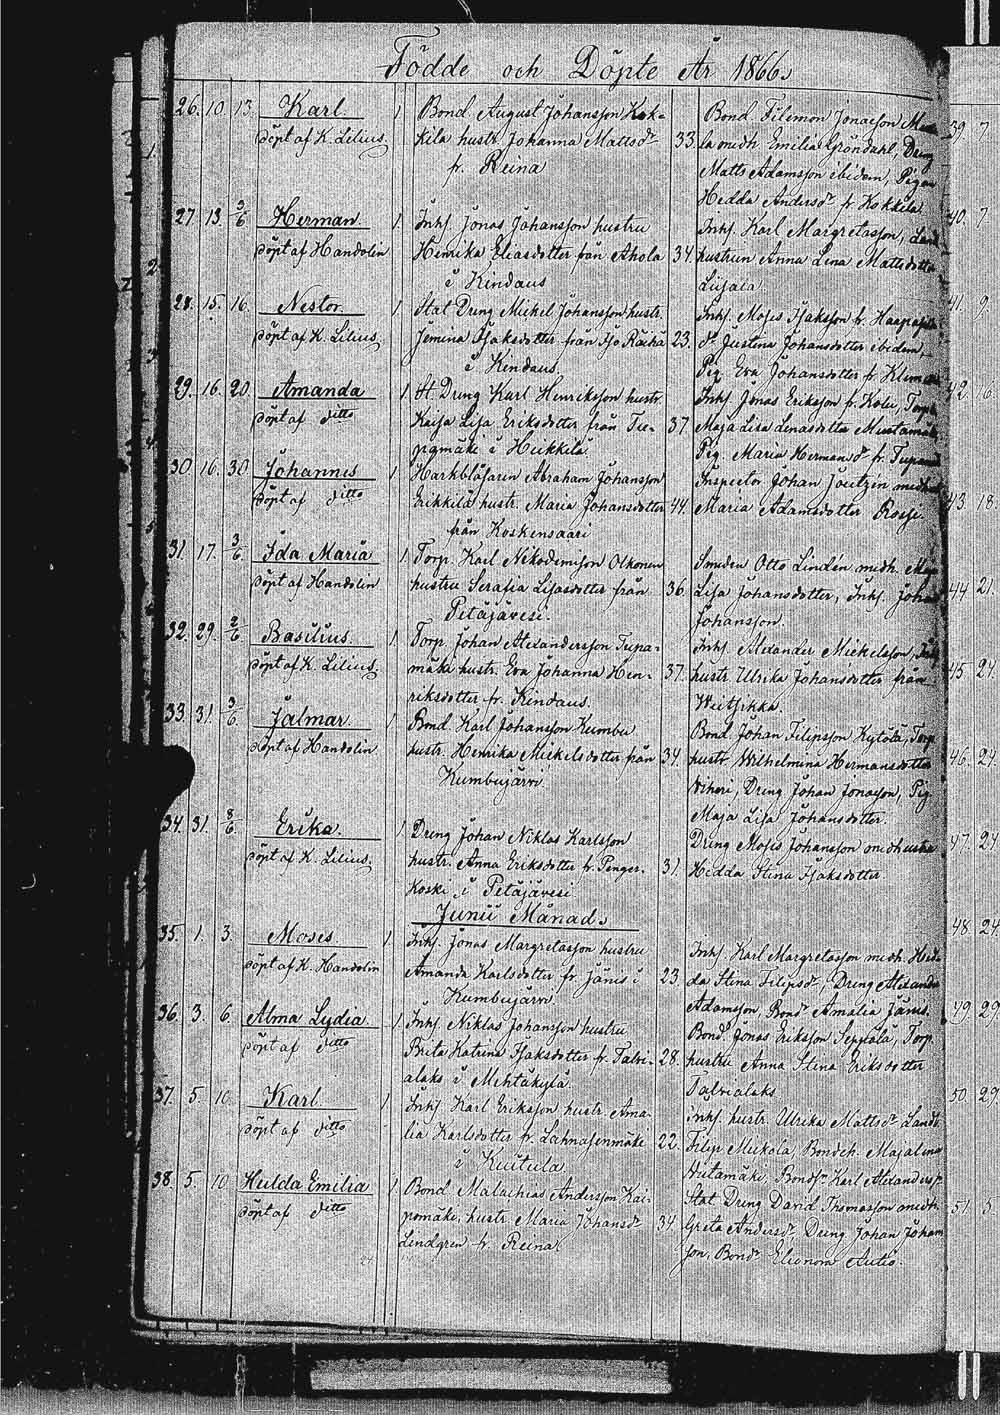 Födde och Döpte År 1866.
26. 10. 13. Karl. 1 Bond August Johansson Kok- Bond Filemon Jonasson
döpt af K. Lilius. kila hustr. Johanna Mattsdr 33. la medh. Emilia Gröndahl, Dreng
fr. Reina Matts Adamsson ibidem, Pigan
Hedda Andersdr fr Kokkila.
27. 13. 3/6 Herman. 1. Inhs. Jonas Johansson hustru Inhs. Karl Margretasson, Land
döpt af Handolin Henrika Eliasdotter från Ahola 34. hustrun Anna Lena Mattsdotter
i Kindaus Liisala
28. 15. 16. Nestor. 1 Stat Dreng Mickel Johansson hustr. Inhs. Moses Isaksson fr.
döpt af K. Lilius. Jemina Isaksdotter från 23. dr Justina Johansdotter ibidem,
i Kindaus. Pig. Eva Johansdotter fr
29. 16. 20. Amanda 1. St. Dreng Karl Henriksson hustr. Inhs. Jonas Eriksson fr. Torp.
döpt af ditto Kaisa Lisa Eriksdotter från 37. Maja Lisa Lenasdotter
i Heikkilä. Pig. Maria Hermansdr fr.
30 16. 30. Johannes 1 Harkblåsaren Abraham Johansson Inspector Johan medh.
döpt af ditto hustr. Maria Johansdotter 44. Maria Adamsdotter
från Koskensaari
31. 17. 3/6 Ida Maria 1. Torp. Karl Nikodemisson Olkonen Smeden Otto Lindén medh.
döpt af Handolin hustru Serafia Lisasdotter från 36. Lisa Johansdotter, Inhs. Johan
Petäjävesi. Johansson.
32. 29. 2/6 Basilius. 1. Torp. Johan Alexandersson Tupa- Inhs. Alexander Mickelsson,
döpt af K. Lilius. mäki hustr. Eva Johanna Hen- 37. hustr. Ulrika Johansdotter från
riksdotter fr. Kindaus.
33. 31. 3/6 Jalmar. 1 Bond. Karl Johansson Kumbu Bond. Johan Filipsson Kytölä, Torp.
döpt af Handolin hustr. Henrika Mickelsdotter från 34. hustr Wilhelmina Hermansdotter
Kumbujärvi. Wiheri, Dreng Johan Jonasson, Pig
Maja Lisa Johansdotter.
34. 31. 8/6. Erika. 1. Dreng Johan Niklas Karlsson Dreng Moses Johansson medh
döpt af K. Lilius. hustr. Anna Eriksdotter fr. Penger- 31. Hedda Stina Isaksdotter.
koski i Petäjävesi
Junii Månad.
35. 1. 3. Moses. 1. Inhs. Jonas Margretasson hustru Inhs. Karl Margretasson medh. Hed-
döpt af K. Handolin Amanda Karlsdotter fr Jänis i 23. da Stina Filipsdr, Dreng Alexander
Kumbujärvi. Adamsson, Bondr Amalia Jänis.
36. 3. 6. Alma Lydia. 1. Inhs. Niklas Johansson hustru Bond. Jonas Eriksson Seppälä, Torp.
döpt af ditto Brita Katrina Isaksdotter fr. Talvi- 28. hustru Anna Stina Eriksdotter
alaks i Mehtäkylä. Talvialaks
37. 5. 10. Karl. 1 Inhs Karl Eriksson hustr. Ama- Inhs. hustr. Ulrika Mattsdr Landt.
döpt af ditto lia Karlsdotter fr. Lahnasenmäki 22. Filip Bondeh. Maja
i Kuitula Bondsr Karl
38. 5. 10 Hulda Emilia 1 Bond Malachias Andersson Kai- Stat Dreng David Thomasson medh.
döpt af ditto pomäki, hustr Maria Johansdr 34. Greta Andersdr, Dreng Johan Johans
Lindgren fr. Reina. son, Bondr Elionora Autio.
39. 7
40. 7.
41. 9.
42. 16.
43. 18.
44. 21.
45 24.
46. 24.
47. 24
48. 24
49. 29.
50. 29.
51. 5.